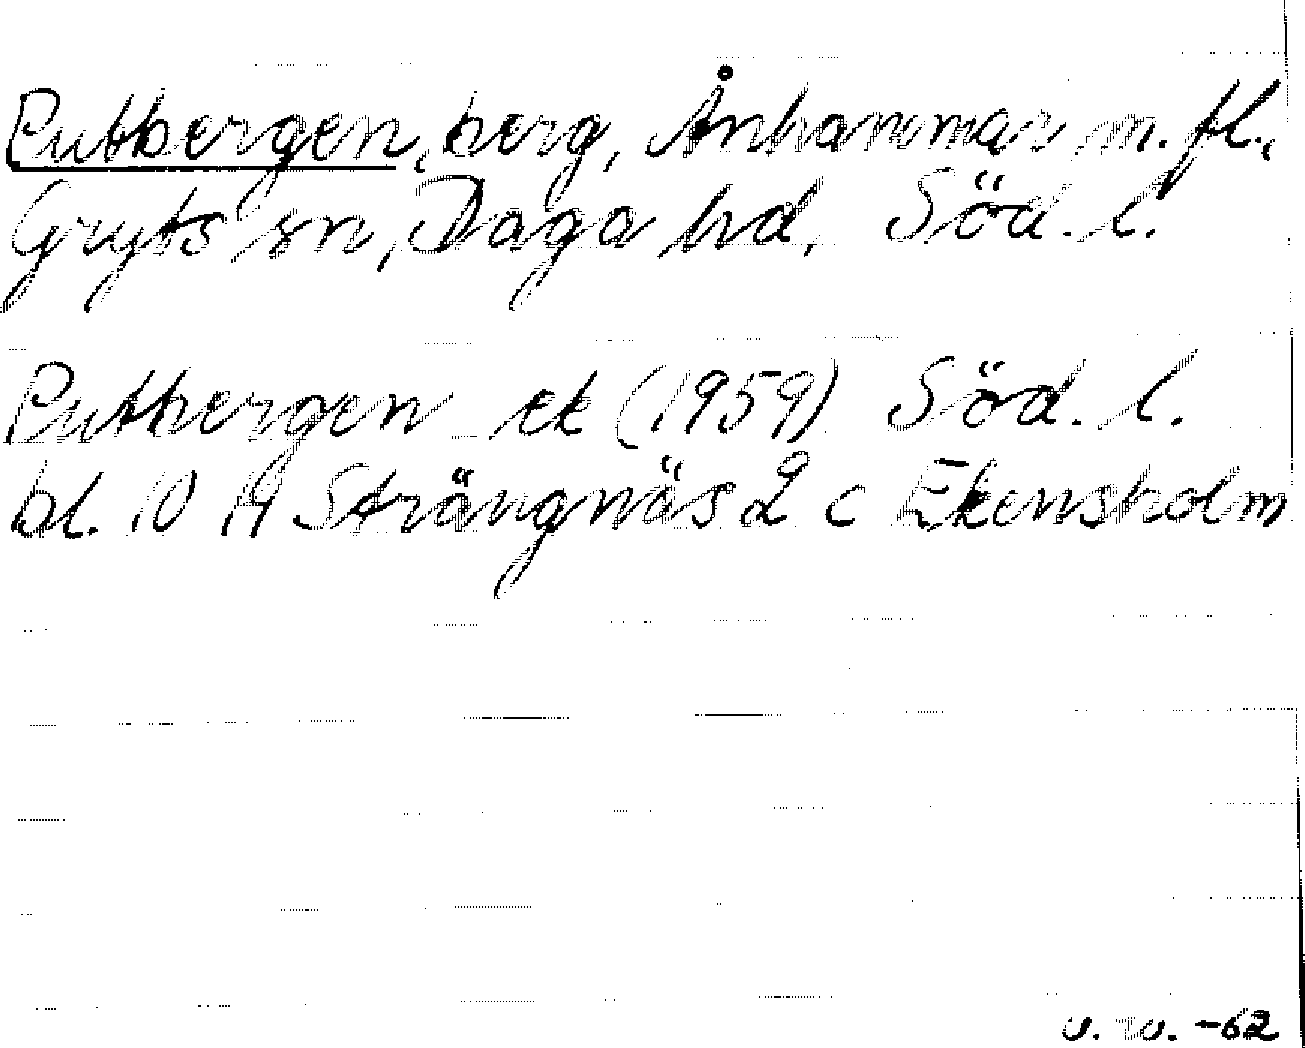 Puttbergen, berg, Ånhammar m. fl.,
Gryts sn, Daga hd, Söd. l.
Puttbergen ek (1959) Söd. l.
bl. 10 H Strängnäs 2 c Ekensholm
-62